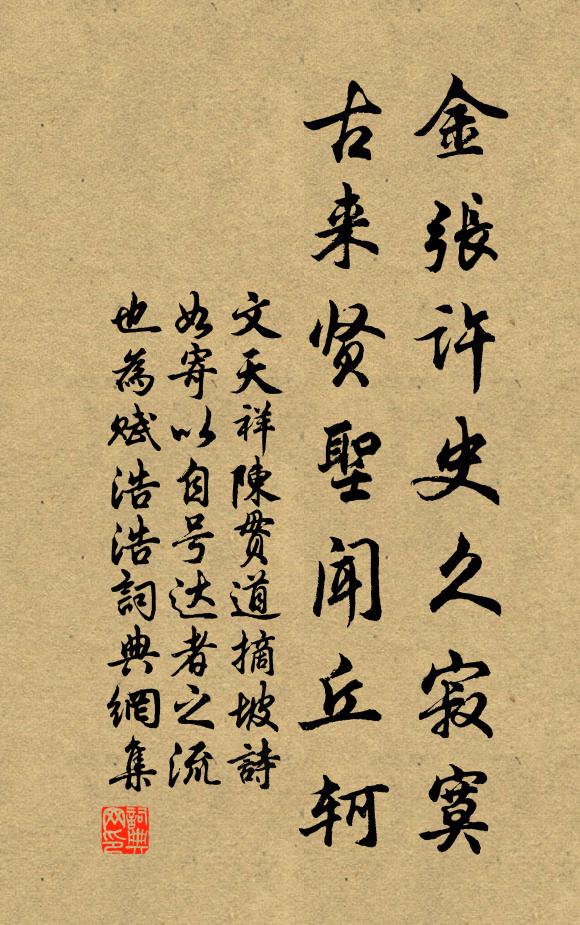 金張許史久寂寞
古来贤聖闻丘轲
文天祥陳贯道摘坡詩
如寄以自号达者之流
也為赋浩浩詞典網集
詞典网印